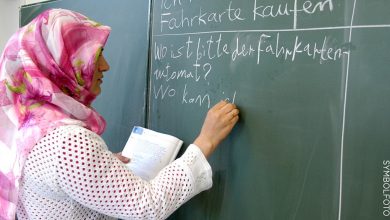 Ich
Fahrkarte kaufen
Wo ist bitte der Fahrkarten-
automat?
Wo kann
SYMBOLFOTO